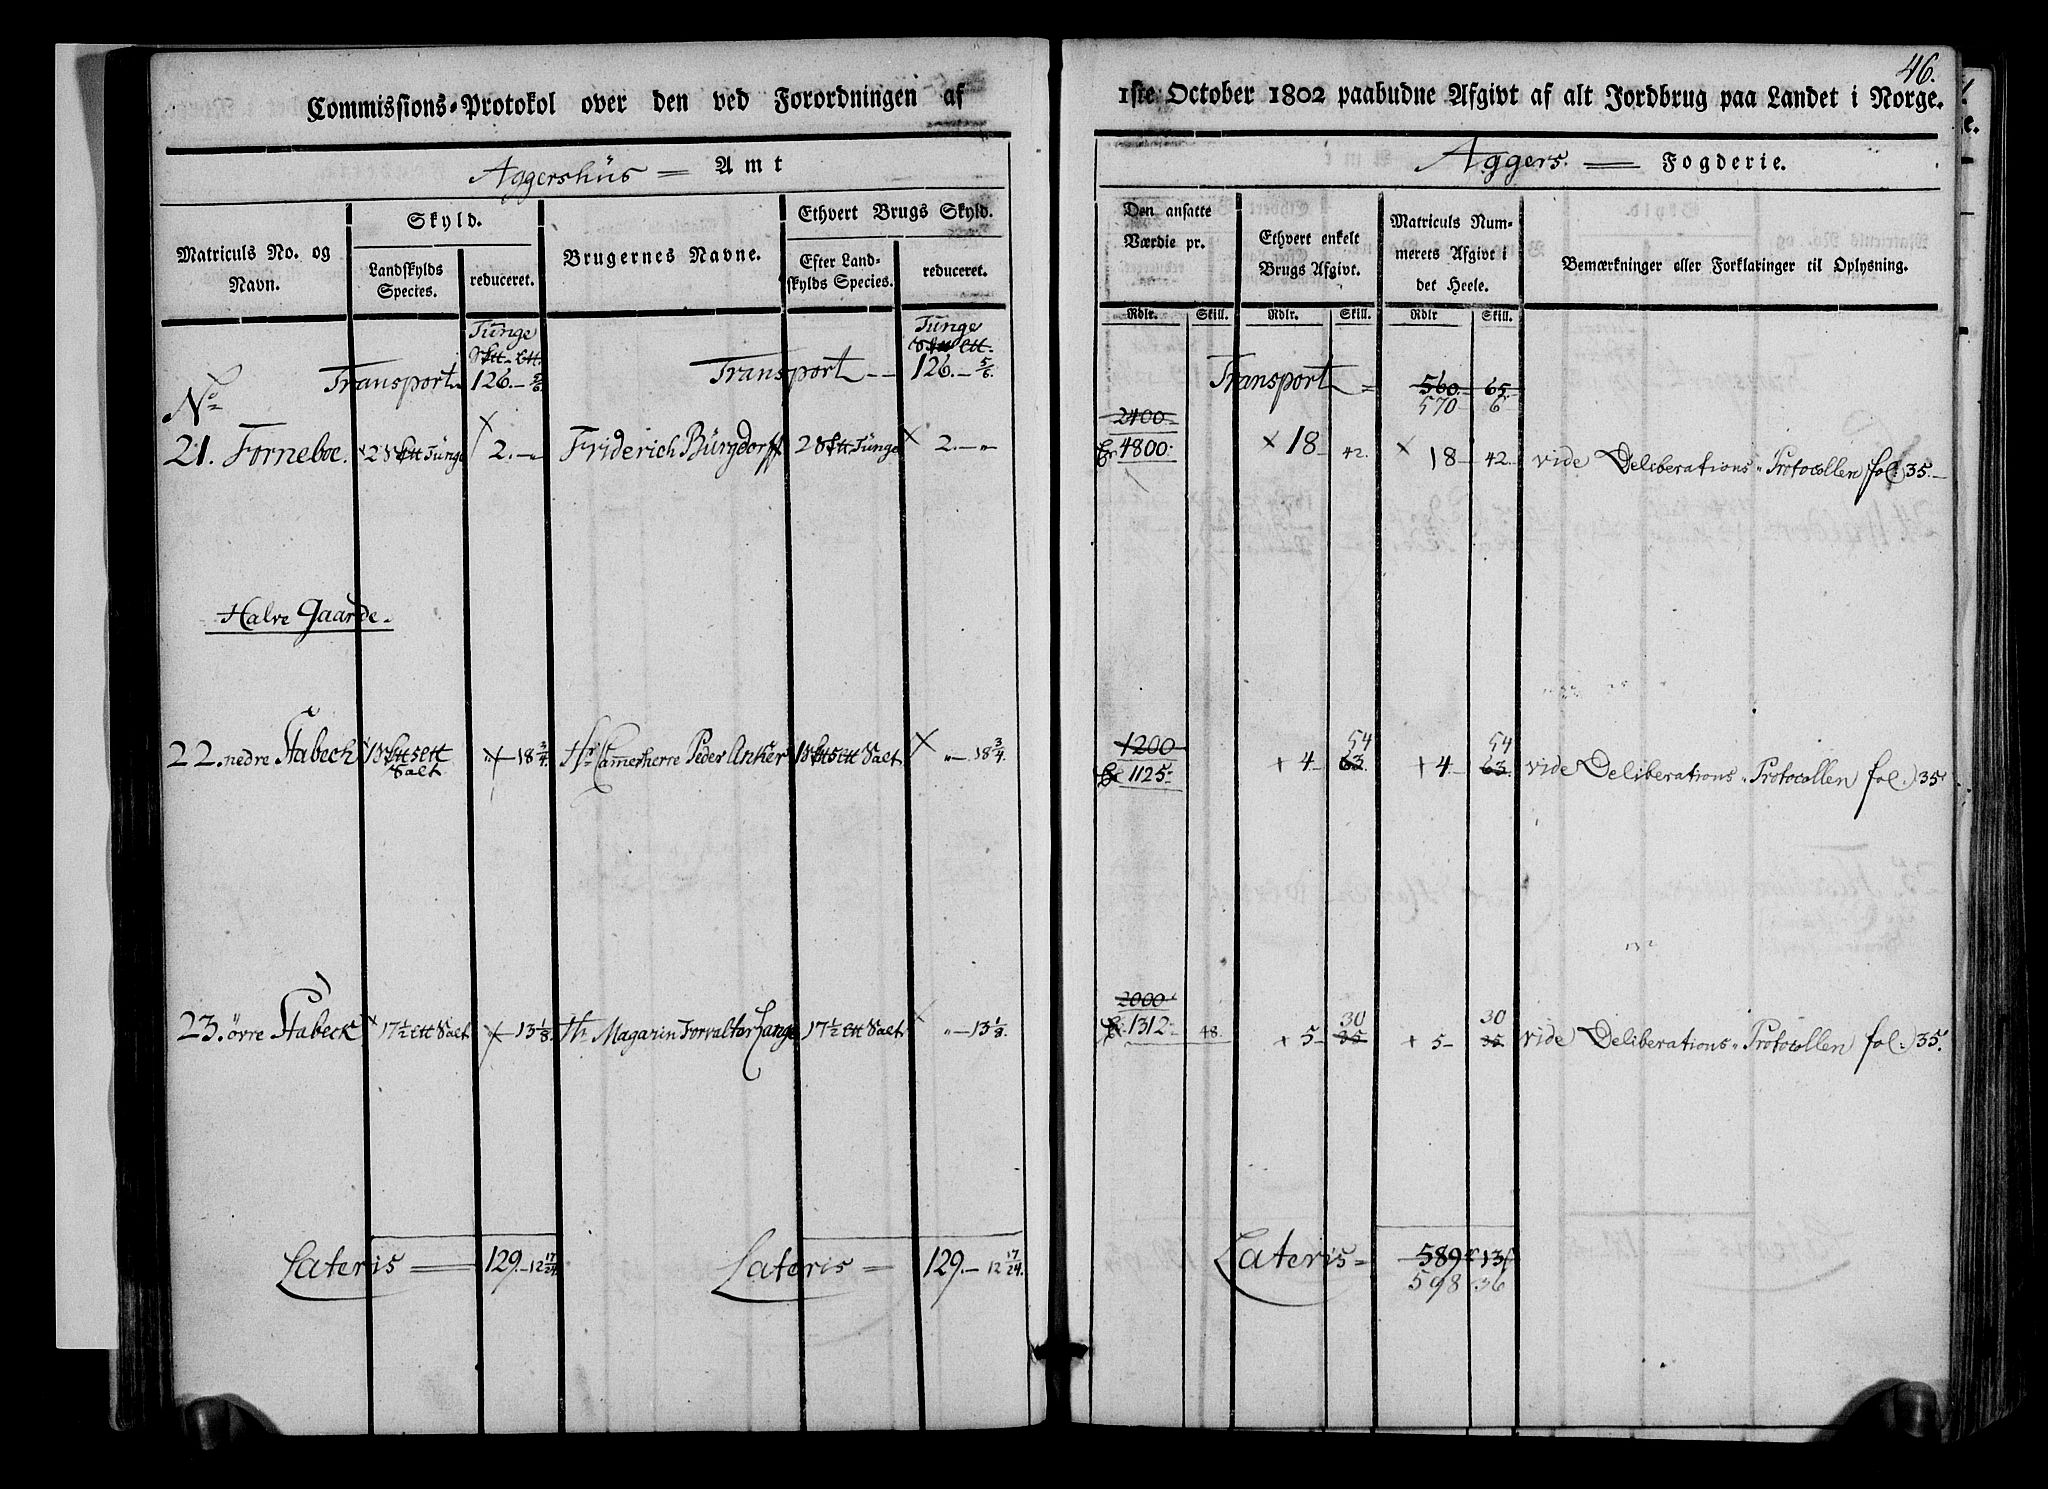 46.
Commissions-Protokol over den ved Forordningen af 1ste October 1802 paabudne Afgivt af alt Jordbrug paa Landet i Norge.
Aggershüs = Amt
Aggers. = Fogderie.
Matriculs No. og Navn.
Skyld.
Landskylds Species.
reduceret.
Brugernes Navne.
Ethvert Brugs Skyld.
Efter Landskylds Species.
reduceret.
Den ansatte Værdie pr.
Ethvert enkelt Brugs Afgivt.
Matriculs Nummerets Afgivt i det Heele.
Bemærkninger eller Forklaringer til Oplysning.
Rdlr. Skill. Rdlr. Skill. Rdlr Skill.
Tünge Tünge
Transport 126. - 5/6 Transport - - 126. - 5/6. Transport = 560. 65.
570 6
No
2400
21. Forneboe. 2 Sktt Tünge × 2. - „ Friderich Bürgdorff 2 Sktt Tünge × 2. - „ 4800: × 18 42. × 18 - 42. vide Deliberations-Protocollen fol: 35. -
Halve Gaarde.
1200 54 54
22. nedre Stabeck 1 Sktt 5 Ltt Salt „ - 18 3/4 Hr. Camerherre Peder Anker 1 Sktt 5 Ltt Salt × „ - 18 3/4. 1125: + 4 63. + 4. 63. vide Deliberations-Protocollen fol. 35
2000 30 30
23. övre Stabeck × 17 1/2 Ltt Salt 13 1/8. Hr. Magazin Forvalter Lange 17 1/2 Ltt Salt × „ - 13 1/8. 1312: 48. + 5 - 35 + 5 - 35 vide Deliberations-Protocollen fol: 35.
Lateris = 129. - 12 17/24. Lateris = 129. - 12 17/24. Lateris = 589 13
598 36